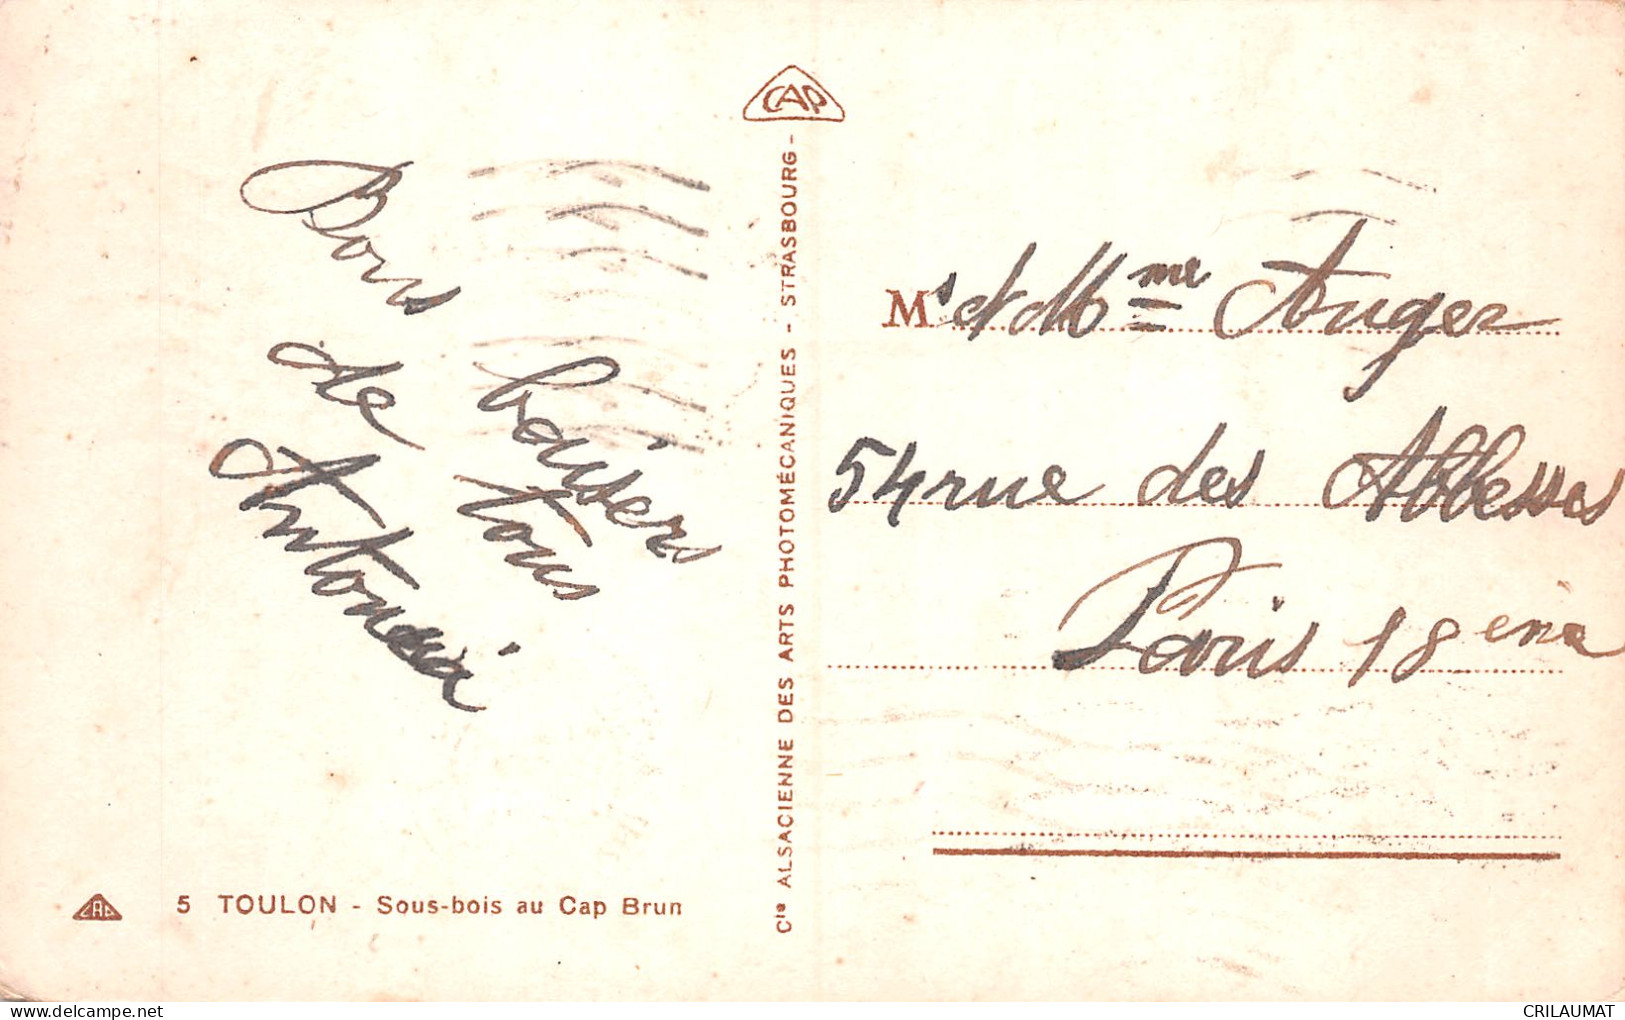 CAP
Bons baisers
de tous
M^s et M^me Auger
54 rue des Abbesses
Paris 18 ème
Cie ALSACIENNE DES ARTS PHOTOMÉCANIQUES - STRASBOURG -
CAP 5 TOULON - Sous-bois au Cap Brun
CRILAUMAT